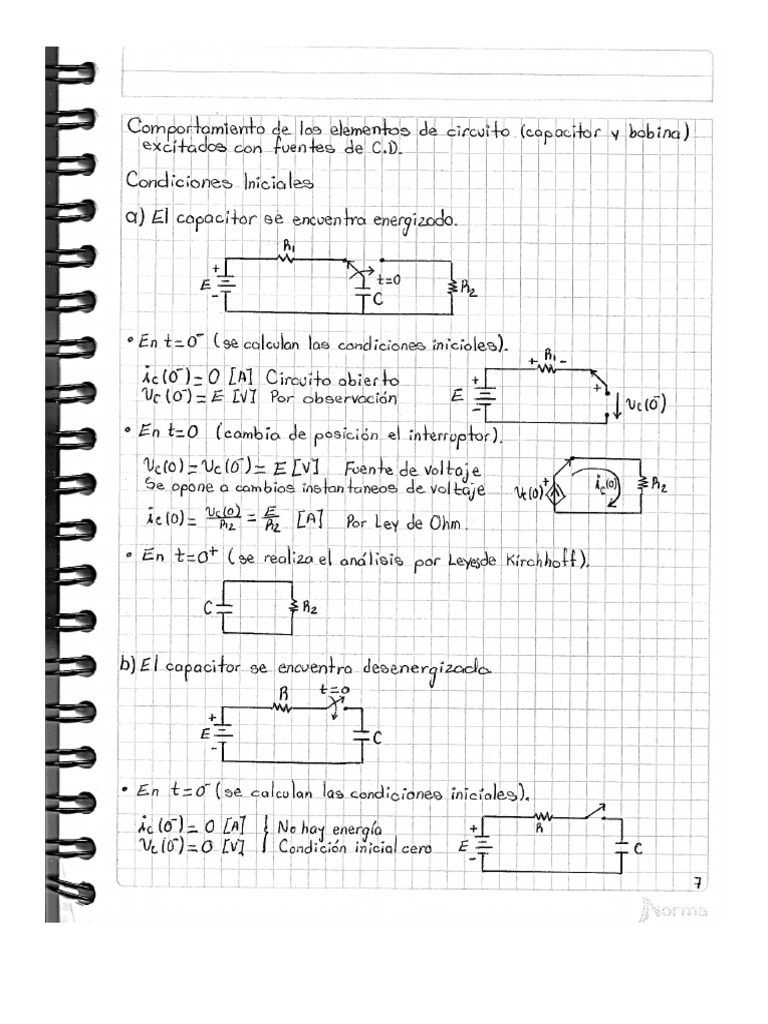 Comportamiento de los elementos de circuito (capacitor y bobina)
excitados con fuentes de C.D.
Condiciones Iniciales
a) El capacitor se encuentra energizado.
R1
+
E
-
t=0
C
R2
• En t=0⁻ (se calculan las condiciones iniciales).
ic(0⁻)=0 [A] Circuito abierto
vc(0⁻)=E [V] Por observación
+ R1 -
+
E
-
+
vc(0⁻)
• En t=0 (cambia de posición el interruptor).
vc(0)=vc(0⁻)=E [V] Fuente de voltaje
Se opone a cambios instantaneos de voltaje
ic(0)=vc(0)/R2=E/R2 [A] Por Ley de Ohm.
vc(0)
+
ic(0)
R2
• En t=0⁺ (se realiza el análisis por Leyes de Kirchhoff).
C
R2
b) El capacitor se encuentra desenergizado
R
t=0
+
E
-
C
• En t=0⁻ (se calculan las condiciones iniciales).
ic(0⁻)=0 [A] } No hay energía
vc(0⁻)=0 [V] } Condición inicial cero
+
E
-
R
C
7
Norma